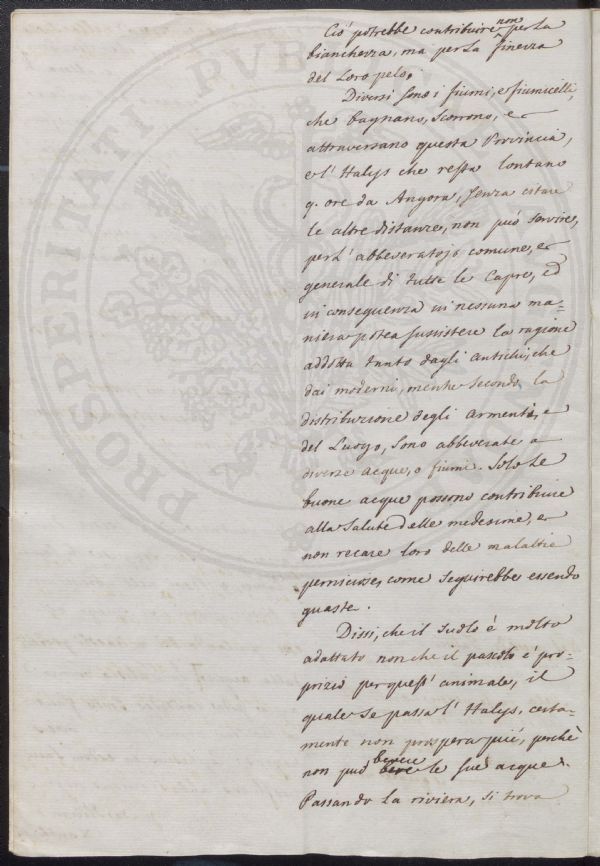 Ciò potrebbe contribuire non per la
bianchezza, ma per la finezza
del loro pelo.
Diversi sono i fiumi, e fiumicelli,
che bagnano, scorrono, e
attraversano questa Provincia,
e l'Halys che resta lontano
9. ore da Angora, senza citare
le altre distanze, non può servire,
per l'abbeveratojo comune, e
generale di tutte le Capre, ed
in conseguenza in nessuna ma=
niera potea sussistere la ragione
addotta tanto dagli antichi, che
dai moderni, mentre secondo la
distribuzione degli armenti, e
del Luogo, sono abbeverate a
diverse acque, o fiumi. Solo le
buone acque possono contribuire
alla salute delle medesime, e
non recare loro delle malattie
perniciose, come seguirebbe essendo
guaste.
Dissi, che il suolo è molto
adattato nonchè il pascolo è pro=
prizio per quest'animale, il
quale se passa l'Halys, certa=
mente non prospera più, perchè
non può bevere le sue acque.
Passando la riviera, si trova
PROSPERITATI PUBLICAE